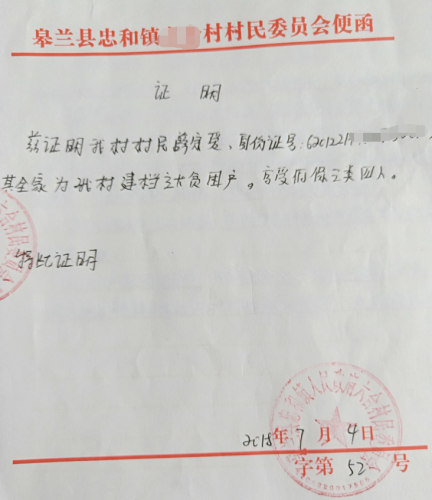 皋兰县忠和镇 村村民委员会便函
证 明
兹证明我村村民薛守登、身份证号:620122
其全家为我村建档立卡贫困户。享受低保三类四人。
特此证明
2018年7月4日
字第52号